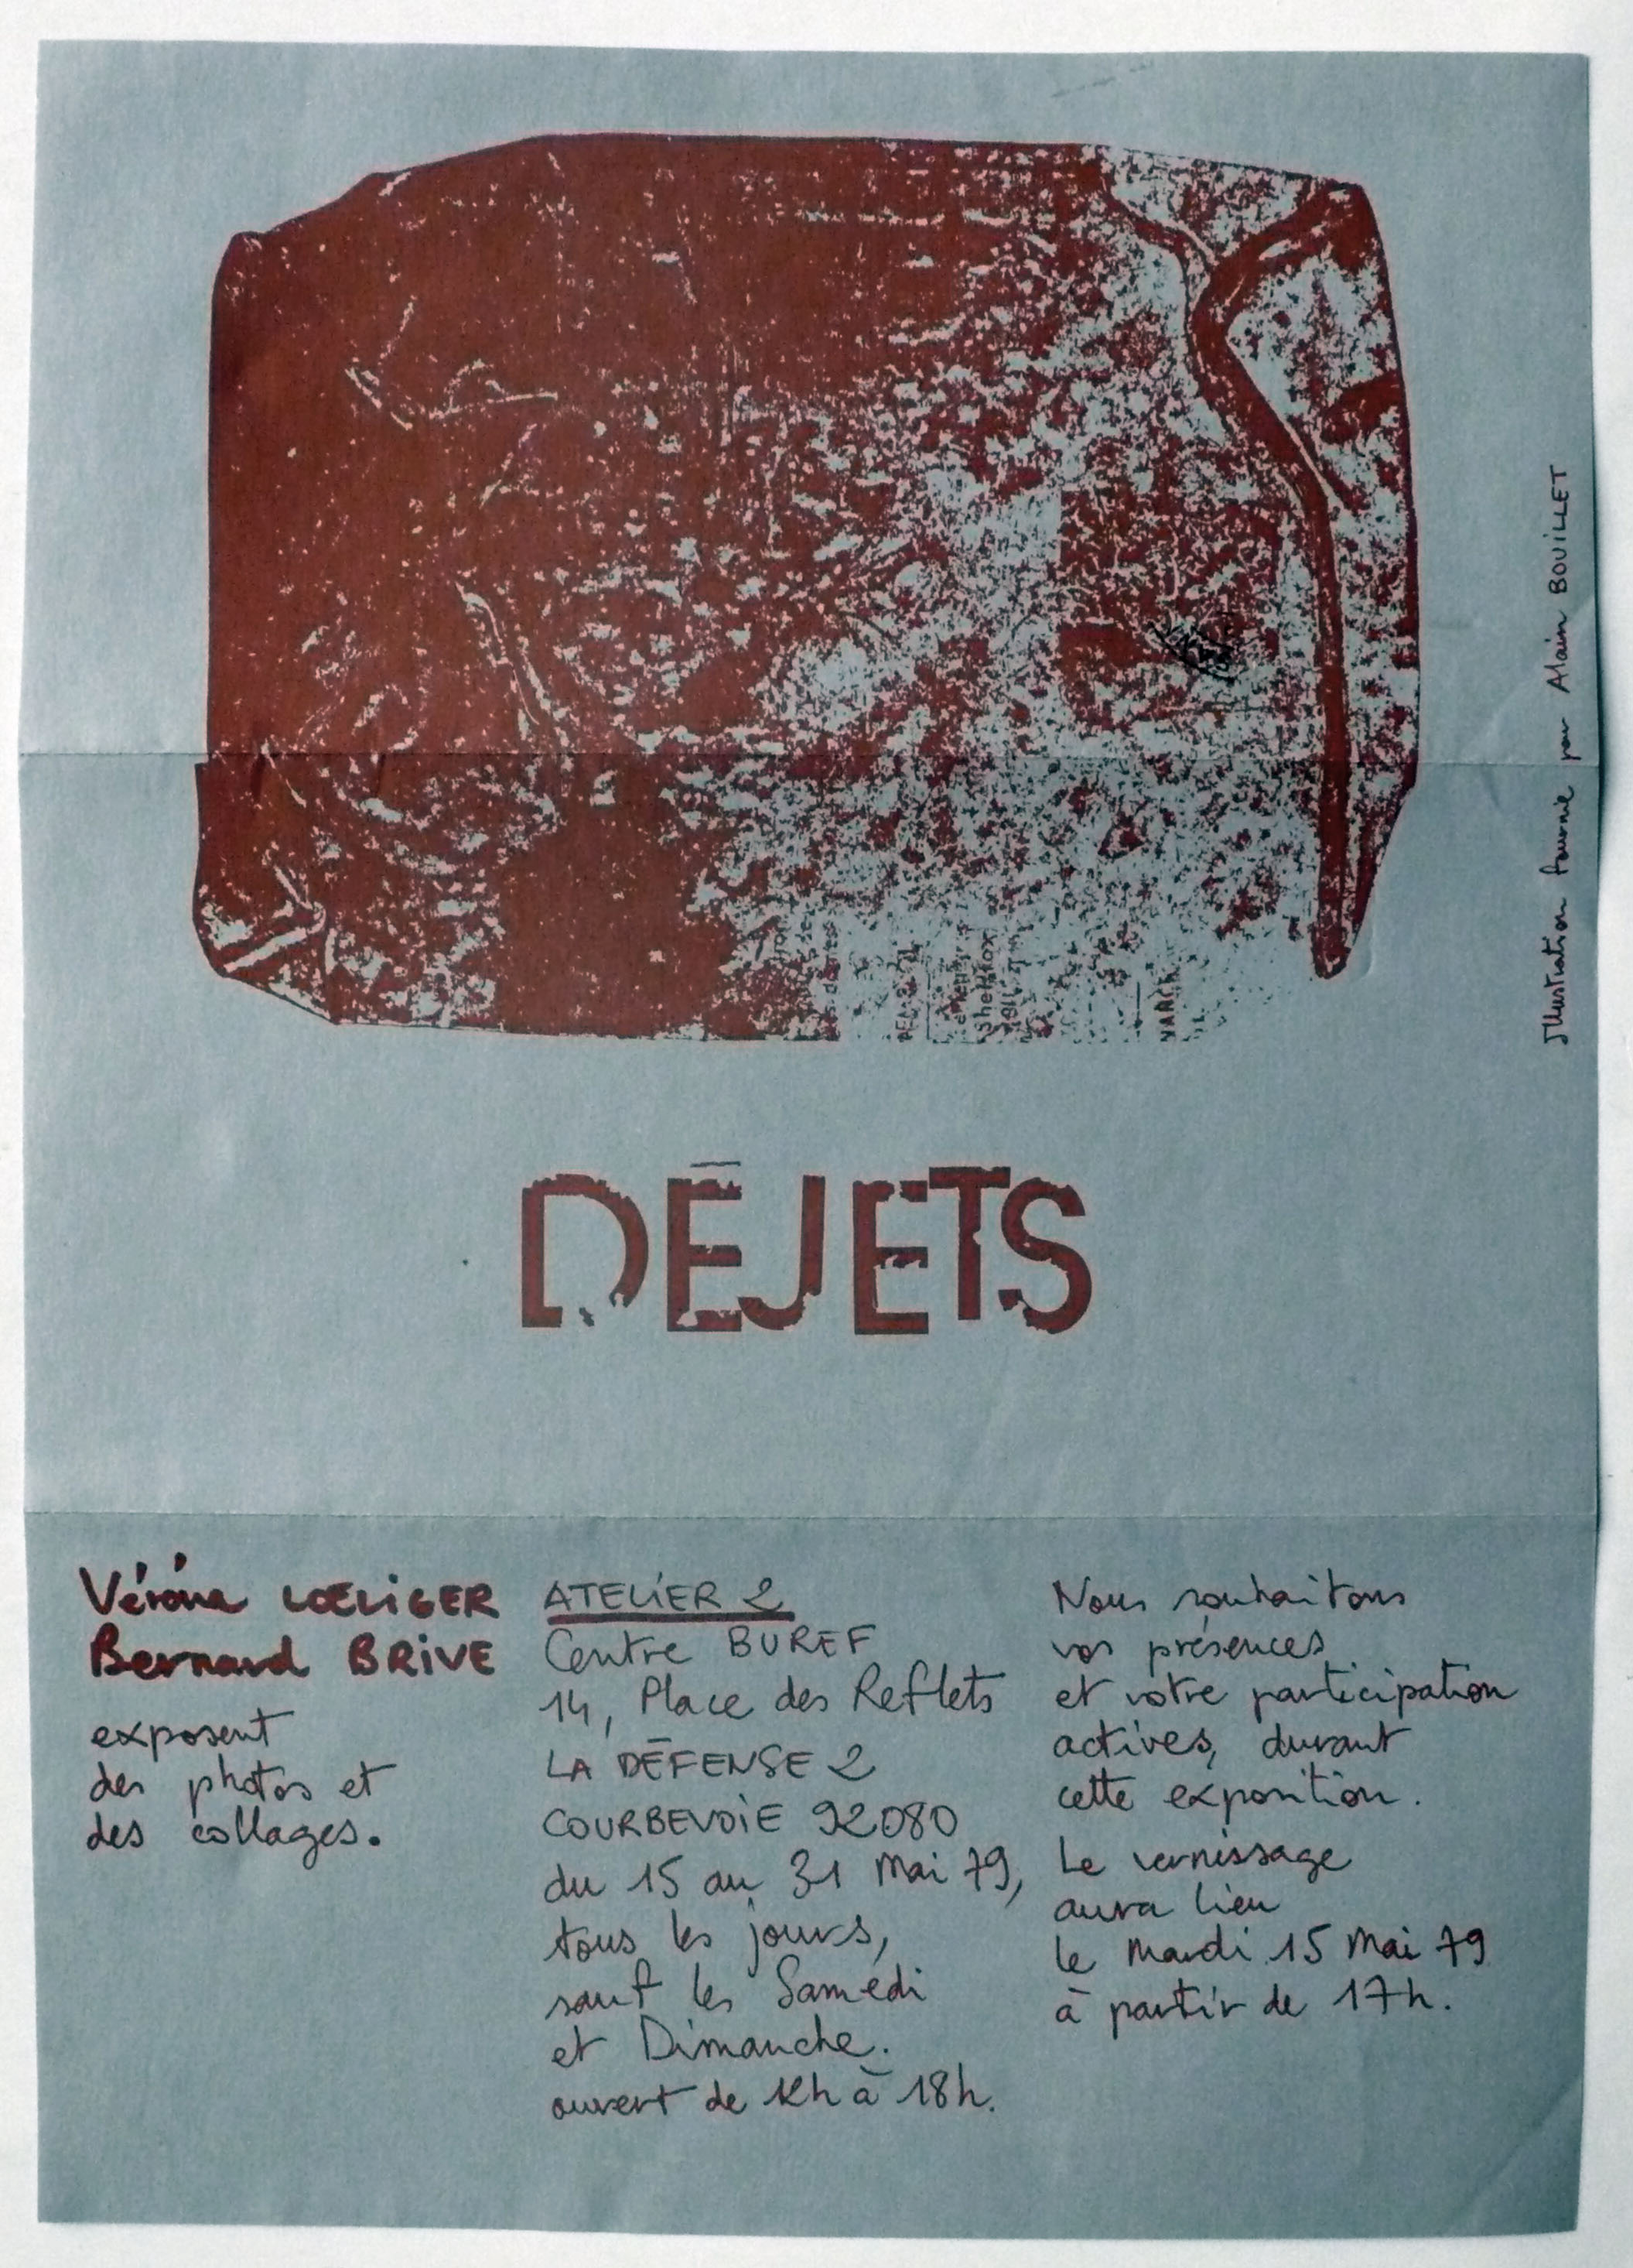 Illustration fournie par Alain BOUILLET
DÉJETS
Véréna LOELIGER
Bernard BRIVE
exposent
des photos et
des collages.
ATELIER 2
Centre BUREF
14, Place des Reflets
LA DÉFENSE 2
COURBEVOIE 92080
du 15 au 31 Mai 79,
tous les jours,
sauf les Samedi
et Dimanche.
ouvert de 12h à 18h.
Nous souhaitons
vos présences
et votre participation
actives, durant
cette exposition.
Le vernissage
aura lieu
le Mardi 15 Mai 79
à partir de 17h.